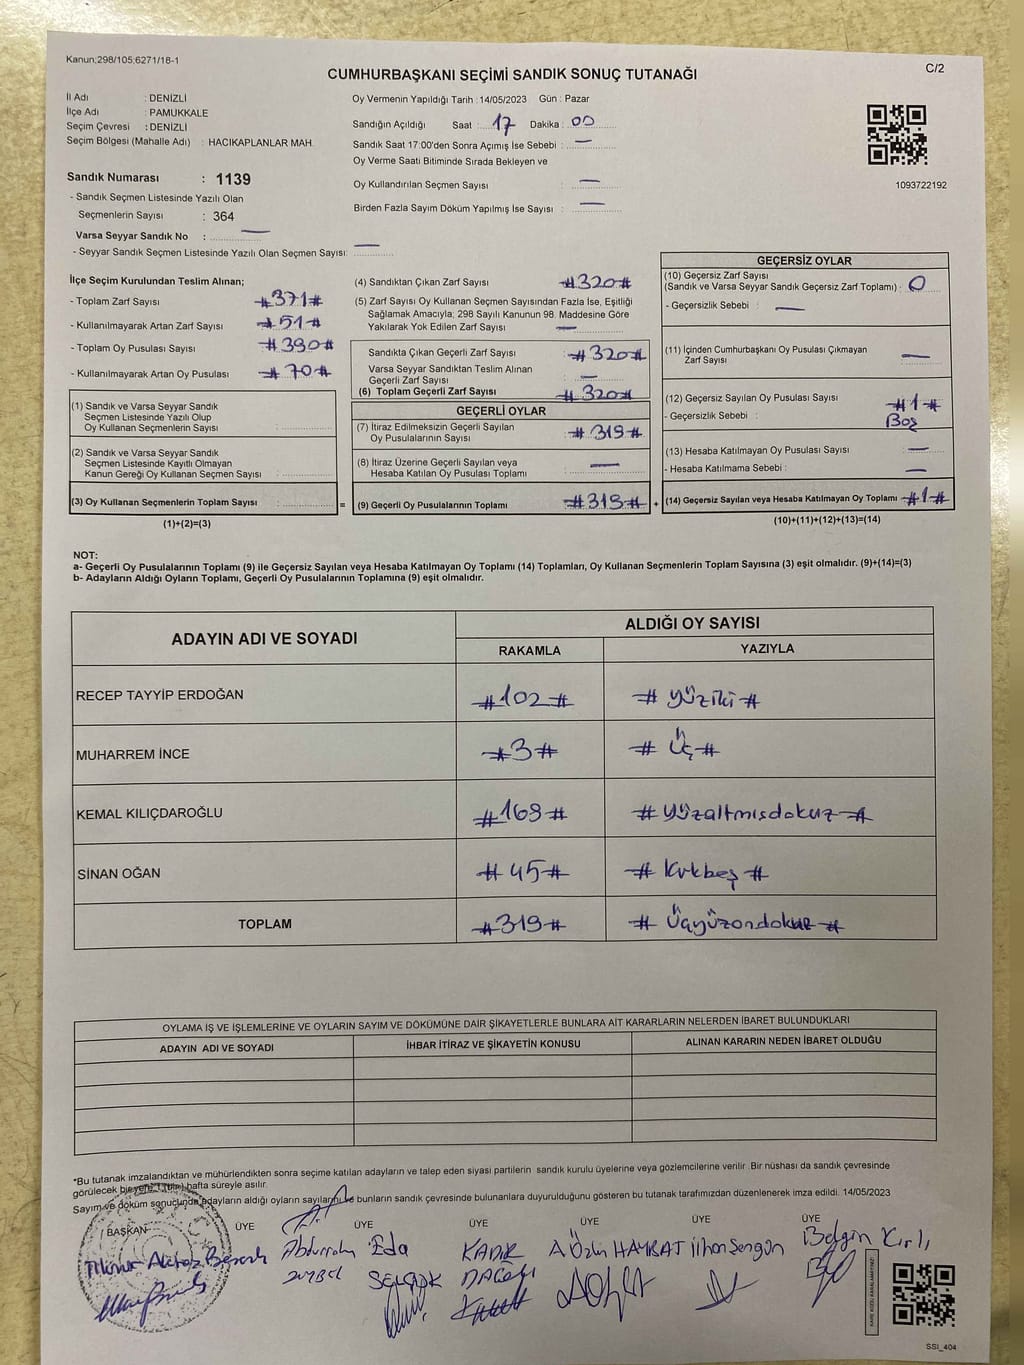 Kanun;298/105;6271/18-1
C/2
CUMHURBAŞKANI SEÇİMİ SANDIK SONUÇ TUTANAĞI
İl Adı : DENİZLİ
İlçe Adı : PAMUKKALE
Seçim Çevresi : DENİZLİ
Seçim Bölgesi (Mahalle Adı) : HACIKAPLANLAR MAH.
Sandık Numarası : 1139
- Sandık Seçmen Listesinde Yazılı Olan
Seçmenlerin Sayısı : 364
Varsa Seyyar Sandık No : —
- Seyyar Sandık Seçmen Listesinde Yazılı Olan Seçmen Sayısı: —
Oy Vermenin Yapıldığı Tarih : 14/05/2023 Gün : Pazar
Sandığın Açıldığı Saat : 17 Dakika : 00
Sandık Saat 17:00'den Sonra Açımış İse Sebebi : —
Oy Verme Saati Bitiminde Sırada Bekleyen ve
Oy Kullandırılan Seçmen Sayısı : —
Birden Fazla Sayım Döküm Yapılmış İse Sayısı : —
1093722192
İlçe Seçim Kurulundan Teslim Alınan;
- Toplam Zarf Sayısı : #371#
- Kullanılmayarak Artan Zarf Sayısı : #51#
- Toplam Oy Pusulası Sayısı : #390#
- Kullanılmayarak Artan Oy Pusulası : #70#
(1) Sandık ve Varsa Seyyar Sandık
Seçmen Listesinde Yazılı Olup
Oy Kullanan Seçmenlerin Sayısı :
(2) Sandık ve Varsa Seyyar Sandık
Seçmen Listesinde Kayıtlı Olmayan
Kanun Gereği Oy Kullanan Seçmen Sayısı :
(3) Oy Kullanan Seçmenlerin Toplam Sayısı : =
(1)+(2)=(3)
(4) Sandıktan Çıkan Zarf Sayısı : #320#
(5) Zarf Sayısı Oy Kullanan Seçmen Sayısından Fazla İse, Eşitliği
Sağlamak Amacıyla; 298 Sayılı Kanunun 98. Maddesine Göre
Yakılarak Yok Edilen Zarf Sayısı : —
Sandıkta Çıkan Geçerli Zarf Sayısı : #320#
Varsa Seyyar Sandıktan Teslim Alınan
Geçerli Zarf Sayısı : —
(6) Toplam Geçerli Zarf Sayısı : #320#
GEÇERLİ OYLAR
(7) İtiraz Edilmeksizin Geçerli Sayılan
Oy Pusulalarının Sayısı : #319#
(8) İtiraz Üzerine Geçerli Sayılan veya
Hesaba Katılan Oy Pusulası Toplamı : —
(9) Geçerli Oy Pusulalarının Toplamı : #319# +
GEÇERSİZ OYLAR
(10) Geçersiz Zarf Sayısı
(Sandık ve Varsa Seyyar Sandık Geçersiz Zarf Toplamı) : 0
- Geçersizlik Sebebi : —
(11) İçinden Cumhurbaşkanı Oy Pusulası Çıkmayan
Zarf Sayısı : —
(12) Geçersiz Sayılan Oy Pusulası Sayısı : #1#
- Geçersizlik Sebebi : Boş
(13) Hesaba Katılmayan Oy Pusulası Sayısı : —
- Hesaba Katılmama Sebebi : —
(14) Geçersiz Sayılan veya Hesaba Katılmayan Oy Toplamı : #1#
(10)+(11)+(12)+(13)=(14)
NOT:
a- Geçerli Oy Pusulalarının Toplamı (9) ile Geçersiz Sayılan veya Hesaba Katılmayan Oy Toplamı (14) Toplamları, Oy Kullanan Seçmenlerin Toplam Sayısına (3) eşit olmalıdır. (9)+(14)=(3)
b- Adayların Aldığı Oyların Toplamı, Geçerli Oy Pusulalarının Toplamına (9) eşit olmalıdır.
ADAYIN ADI VE SOYADI
ALDIĞI OY SAYISI
RAKAMLA YAZIYLA
RECEP TAYYİP ERDOĞAN #102# # yüziki #
MUHARREM İNCE #3# # Üç #
KEMAL KILIÇDAROĞLU #169# # yüzaltmışdokuz #
SİNAN OĞAN #45# # kırkbeş #
TOPLAM #319# # Üçyüzondokuz #
OYLAMA İŞ VE İŞLEMLERİNE VE OYLARIN SAYIM VE DÖKÜMÜNE DAİR ŞİKAYETLERLE BUNLARA AİT KARARLARIN NELERDEN İBARET BULUNDUKLARI
ADAYIN ADI VE SOYADI İHBAR İTİRAZ VE ŞİKAYETİN KONUSU ALINAN KARARIN NEDEN İBARET OLDUĞU
*Bu tutanak imzalandıktan ve mühürlendikten sonra seçime katılan adayların ve talep eden siyasi partilerin sandık kurulu üyelerine veya gözlemcilerine verilir .Bir nüshası da sandık çevresinde
görülecek bir yere, 1 (bir) hafta süreyle asılır.
Sayım ve döküm sonucunda adayların aldığı oyların sayılarını ve bunların sandık çevresinde bulunanlara duyurulduğunu gösteren bu tutanak tarafımızdan düzenlenerek imza edildi. 14/05/2023
BAŞKAN ÜYE ÜYE ÜYE ÜYE ÜYE ÜYE
Eda KADİR A.Özlü HAYRAT İlhan Sengün Belgin Kırlı
SELÇUK
SSI_404